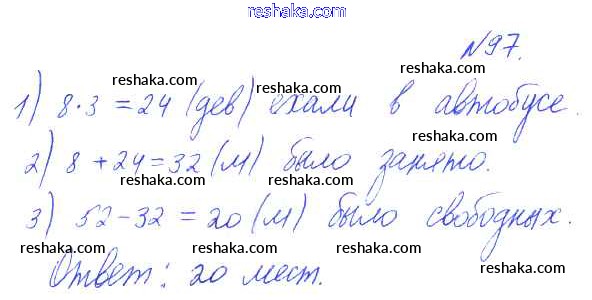 reshaka.com
№97.
reshaka.com reshaka.com reshaka.com
1) 8·3 = 24 (дев) ехали в автобусе.
2) 8 + 24 = 32 (м) было занято.
reshaka.com reshaka.com reshaka.com
3) 52 - 32 = 20 (м) было свободных.
reshaka.com reshaka.com reshaka.com reshaka.com
Ответ: 20 мест.